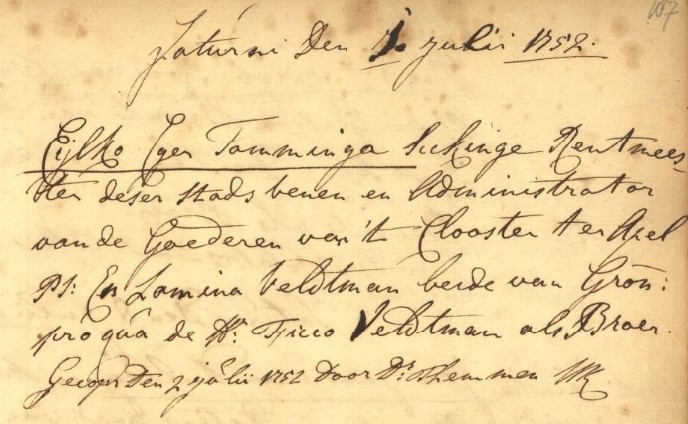 187
Saturni Den 1 Julii 1752.
Eijlko Eger Tamminga Sickinge Rentmees-
ter deser stads venen en Administrator
van de Goederen van 't Clooster ter Apel
Pl: En Lamina Veldtman beide van Gron:
pro qua de Hr. Ticco Veldtman als Broer.
Gecop: Den 2 julii 1752 Door Ds.